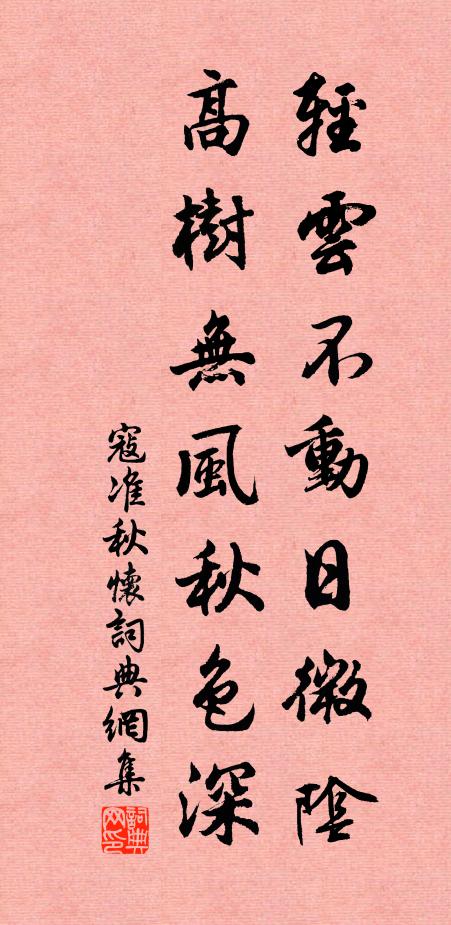 輕雲不動日微陰
高樹無風秋色深
寇准秋懷詞典網集
詞典網印